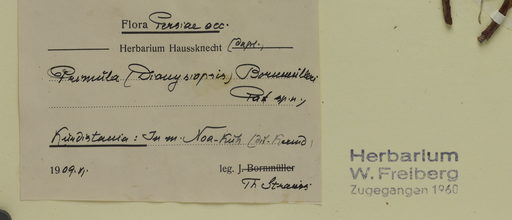 Flora Persiae occ.
Herbarium Haussknecht (Dupl.)
Primula (Dionysiopsis) Bornmülleri
Pax sp. n.
Kurdistania: In m. Noa-Kuh
1909. V. leg. J. Bornmüller
Th. Strauss
Herbarium
W. Freiberg
Zugegangen 1960